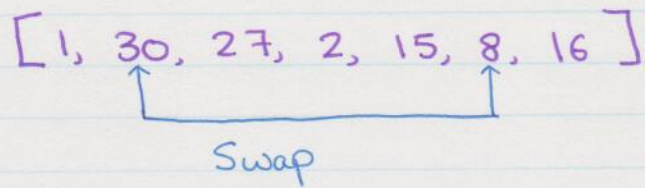 [1, 30, 27, 2, 15, 8, 16]
Swap